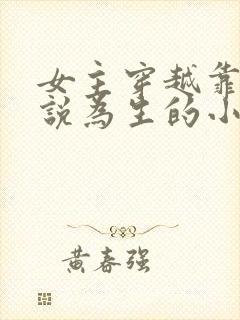 女主穿越靠
說為生的小
黃春强